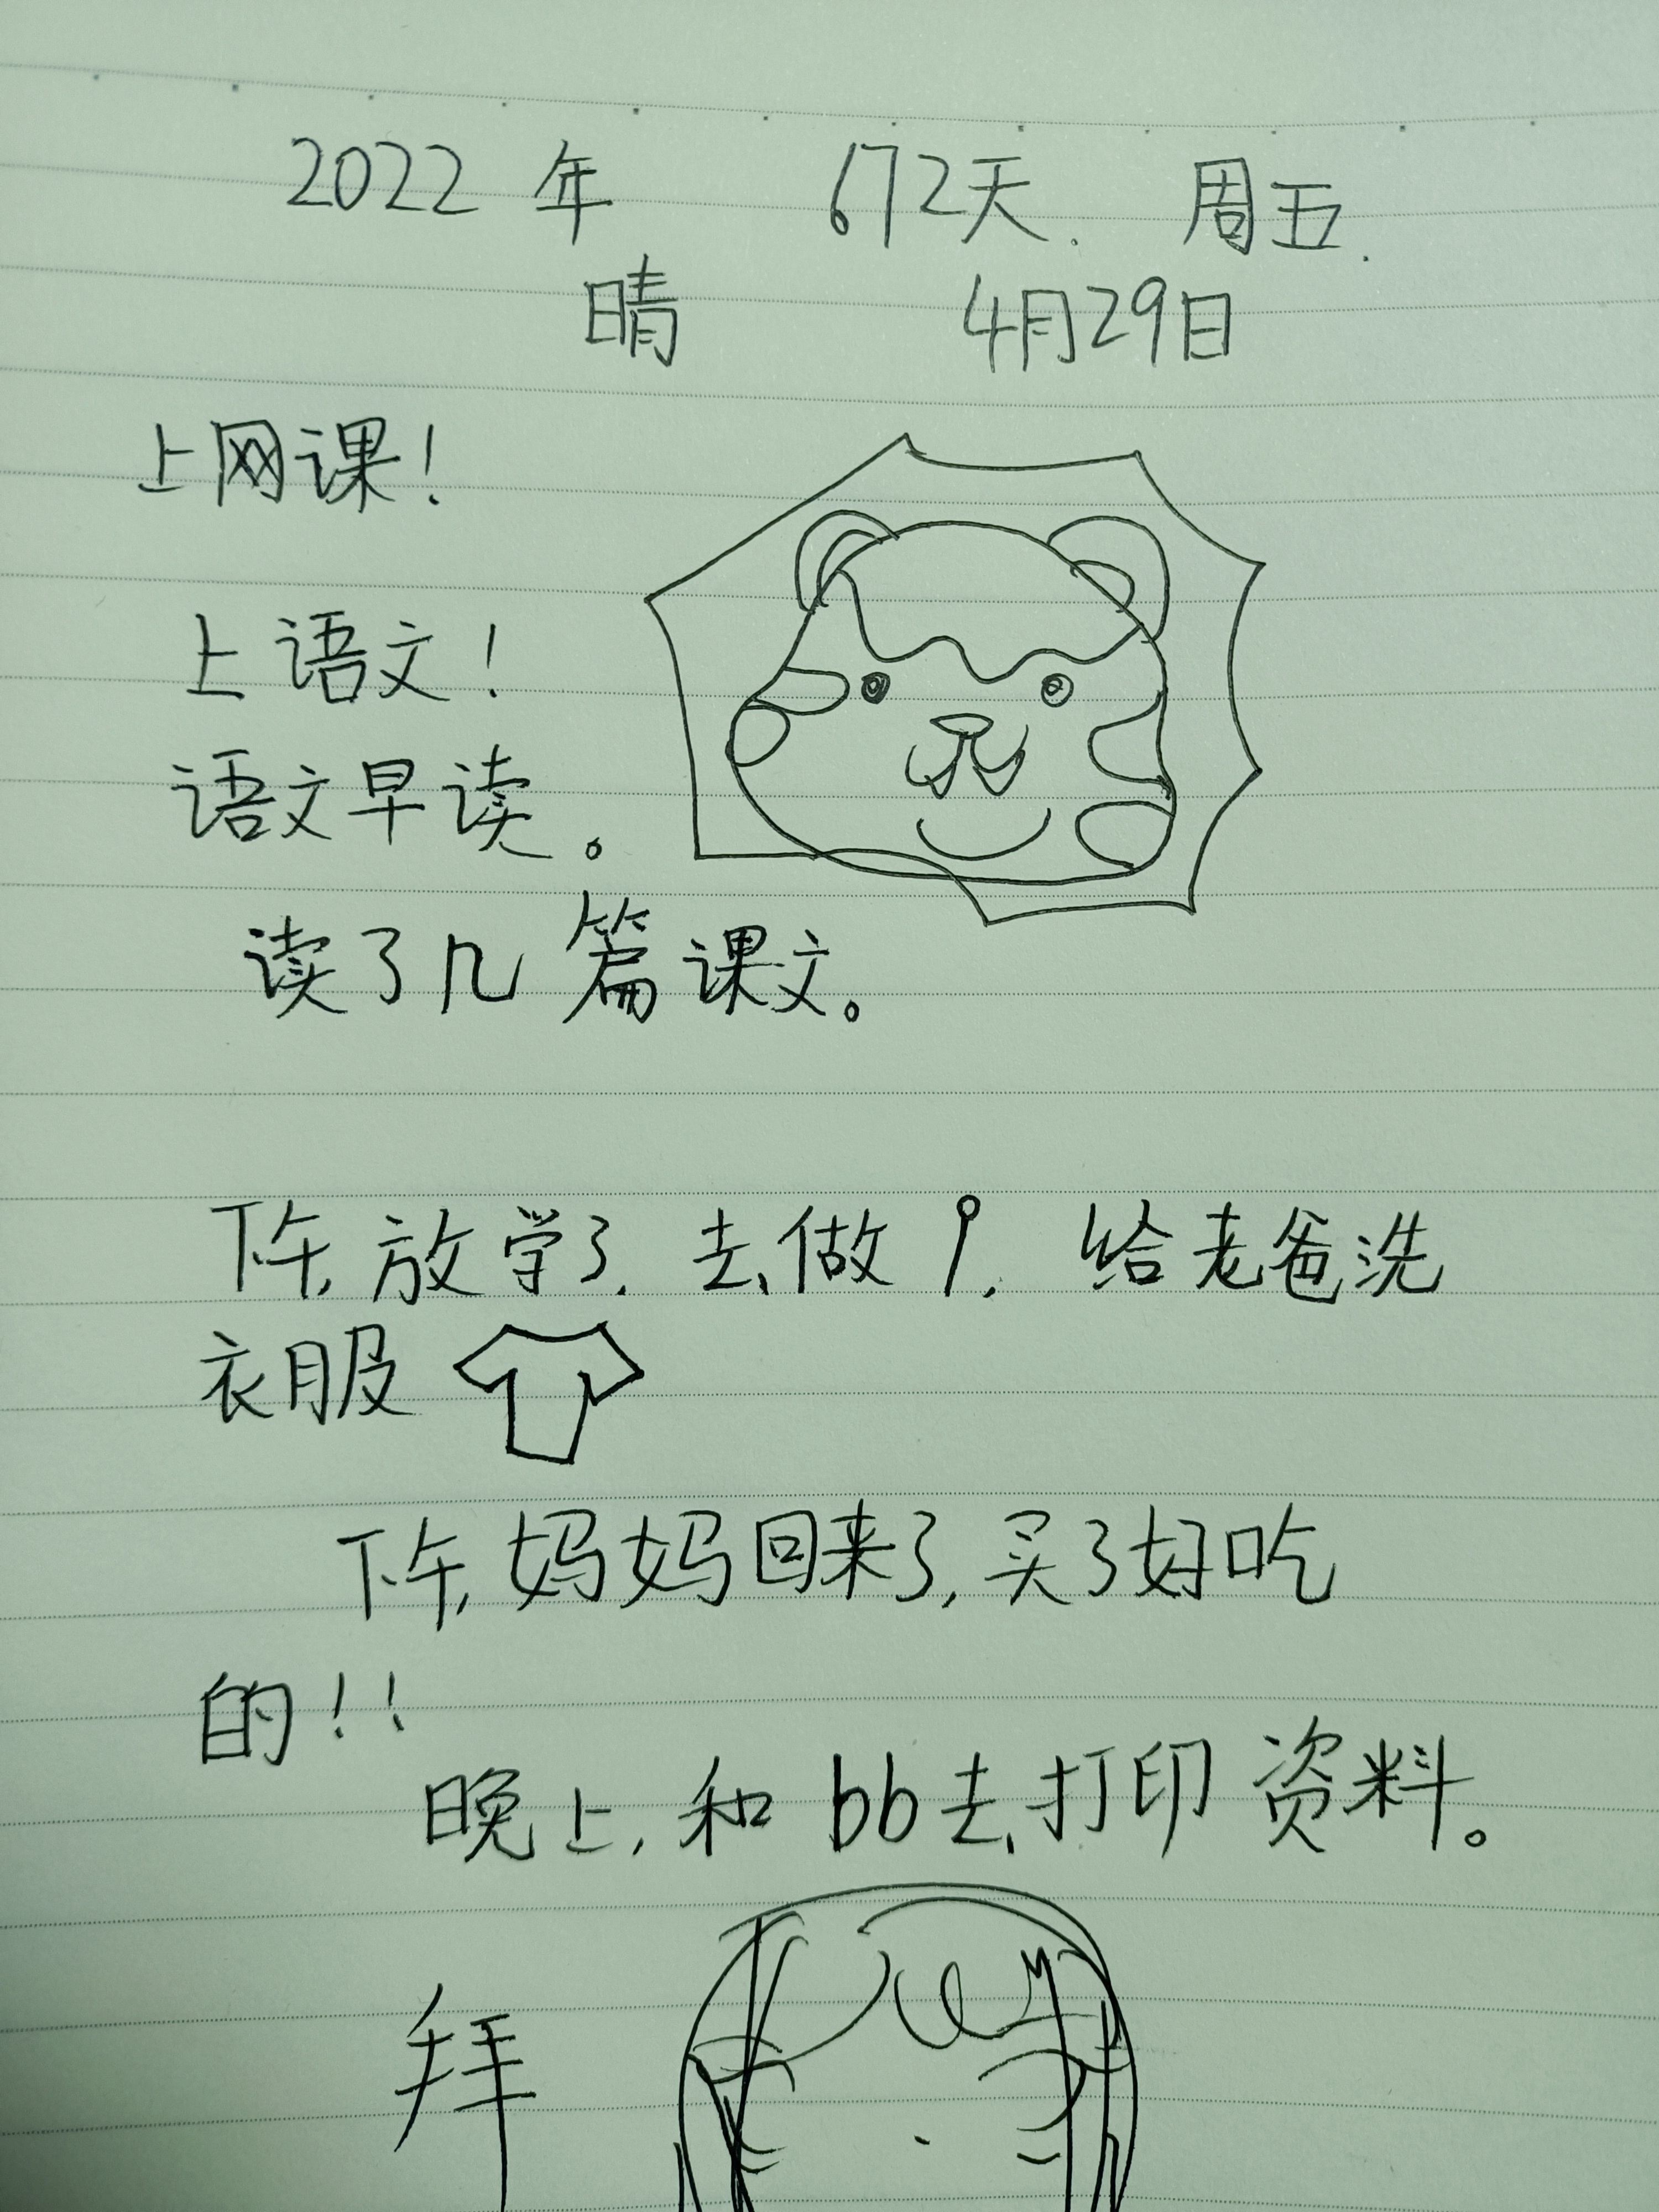 2022 年 672天. 周五.
晴 4月29日
上网课!
上语文!
语文早读。
读了几篇课文。
下午,放学了,去做,给老爸洗
衣服
下午,妈妈回来了,买了好吃
的!!
晚上,和bb去打印资料。
拜